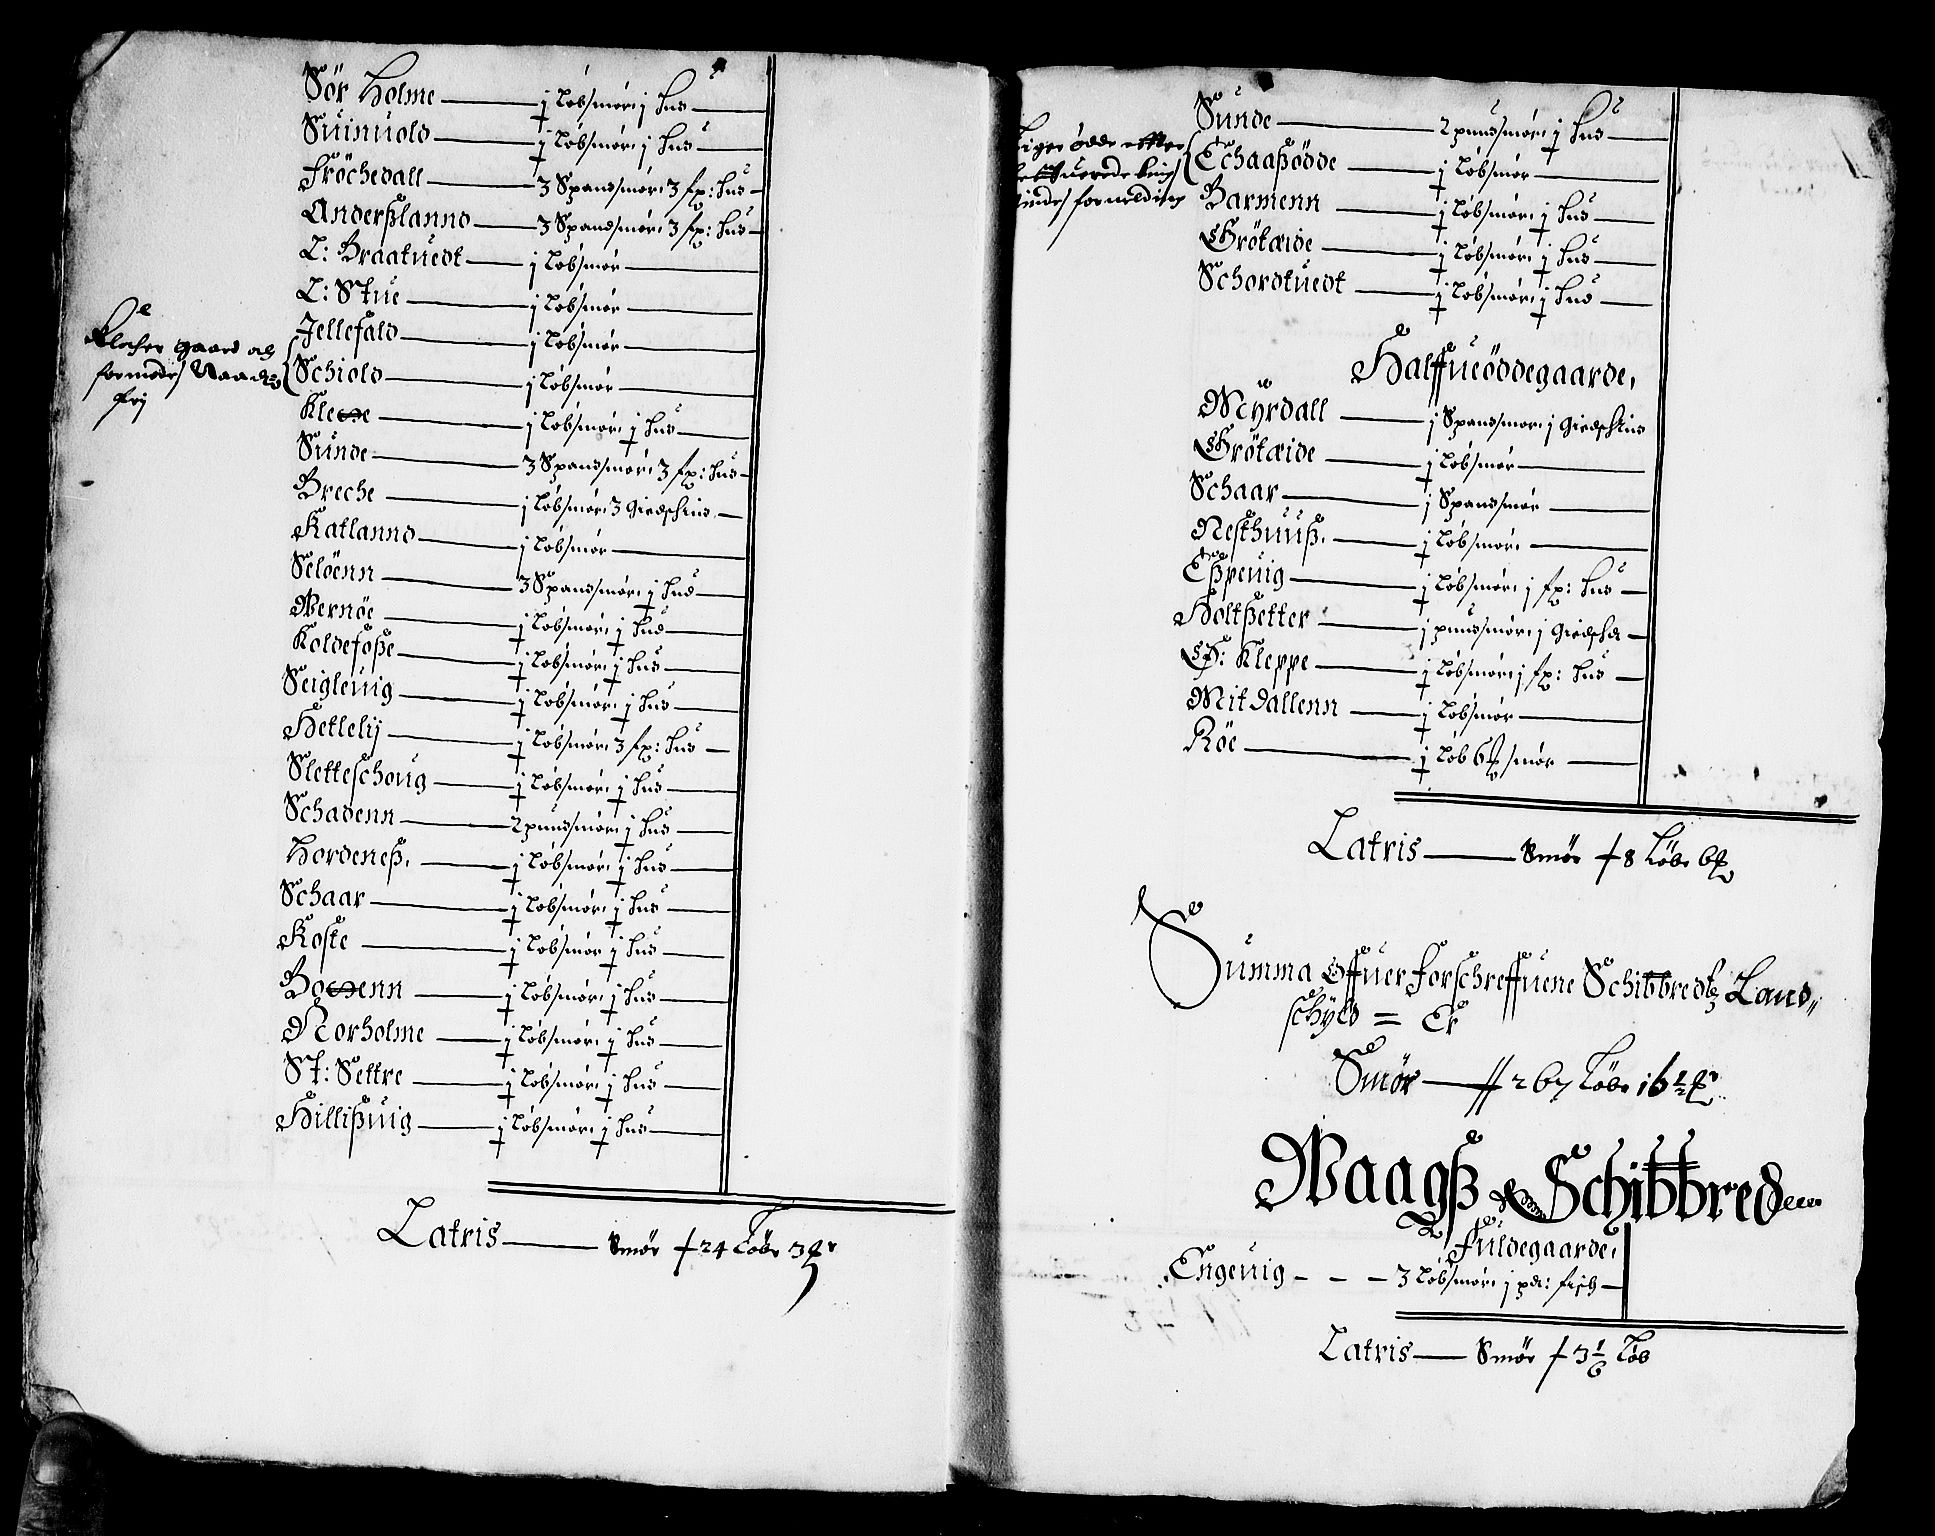 Sör Holme — j Löbsmör: j Hud
Suinuold — j Löbsmör: j Hud
Fröchedall — 3 Spandsmör: 3 fp: Hud
Anderßlannd — 3 Spandsmör: 3 fp: Hud
L: Braatuedt — j Löbsmör
L: Stue — j Löbsmör
Jellefald — j Löbsmör
gaard
fri
Schiold — j Löbsmör
Kle — j Löbsmör: j Hud
Sunde — 3 Spandsmör: 3 fp: Hud
Breche — j Löbsmör: 3 Giedschind
Katlannd — j Löbsmör
Selöenn — 3 Spandsmör: j Hud
Wernöe — j Löbsmör: j Hud
Koldefoße — j Löbsmör: j Hud
Seigleuig — j Löbsmör: j Hud
Hetlelij — j Löbsmör: 3 fp: Hud
Sletteschoug — j Löbsmör: j Hud
Schadenn — 2 pundsmör: j Hud
Hordeneß — j Löbsmör: j Hud
Schaar — j Löbsmör: j Hud
Koste — j Löbsmör j Hud
Bo enn — j Löbsmör: j Hud
Norholme — j Löbsmör: j Hud
St: Settre — j Löbsmör: j Hud
Hillißuig — j Löbsmör: j Hud
Latris — Smör 24 Löbe 3
Sunde — 2 pundsmör: j Hud
öde effter
formelding
Echaaßödde — j Löbsmör
Barmenn — j Löbsmör: j Hud
Grötæide — j Löbsmör: j Hud
Schordtuedt — j Löbsmör: j Hud
Halffueöddegaarde,
Myrdall — j Spandsmör: j Giedschind
Grötæide — j Löbsmör
Schaar — j Spandsmör
Nesthuuß — j Löbsmör:
Eßpeuig — j Löbsmör: j fp: Hud
Holtßetter — j pundsmör: j Giedsch
Ø: Kleppe — j Löbsmör: j fp: Hud
Mitdallenn — j Löbsmör
Röe — j Löb 6 smör
Latris — Smör 8 Löbe 6
Summa Offuer Forschreffuene Schibbredtz Land„
schyld = Er
Smör — 267 Löbe 16½
Waagß Schibbreden
Fuldegaarde,
Engeuig - - - 3 Löbsmör: j pd: fisch
Latris — Smör 3 1/6 Löb